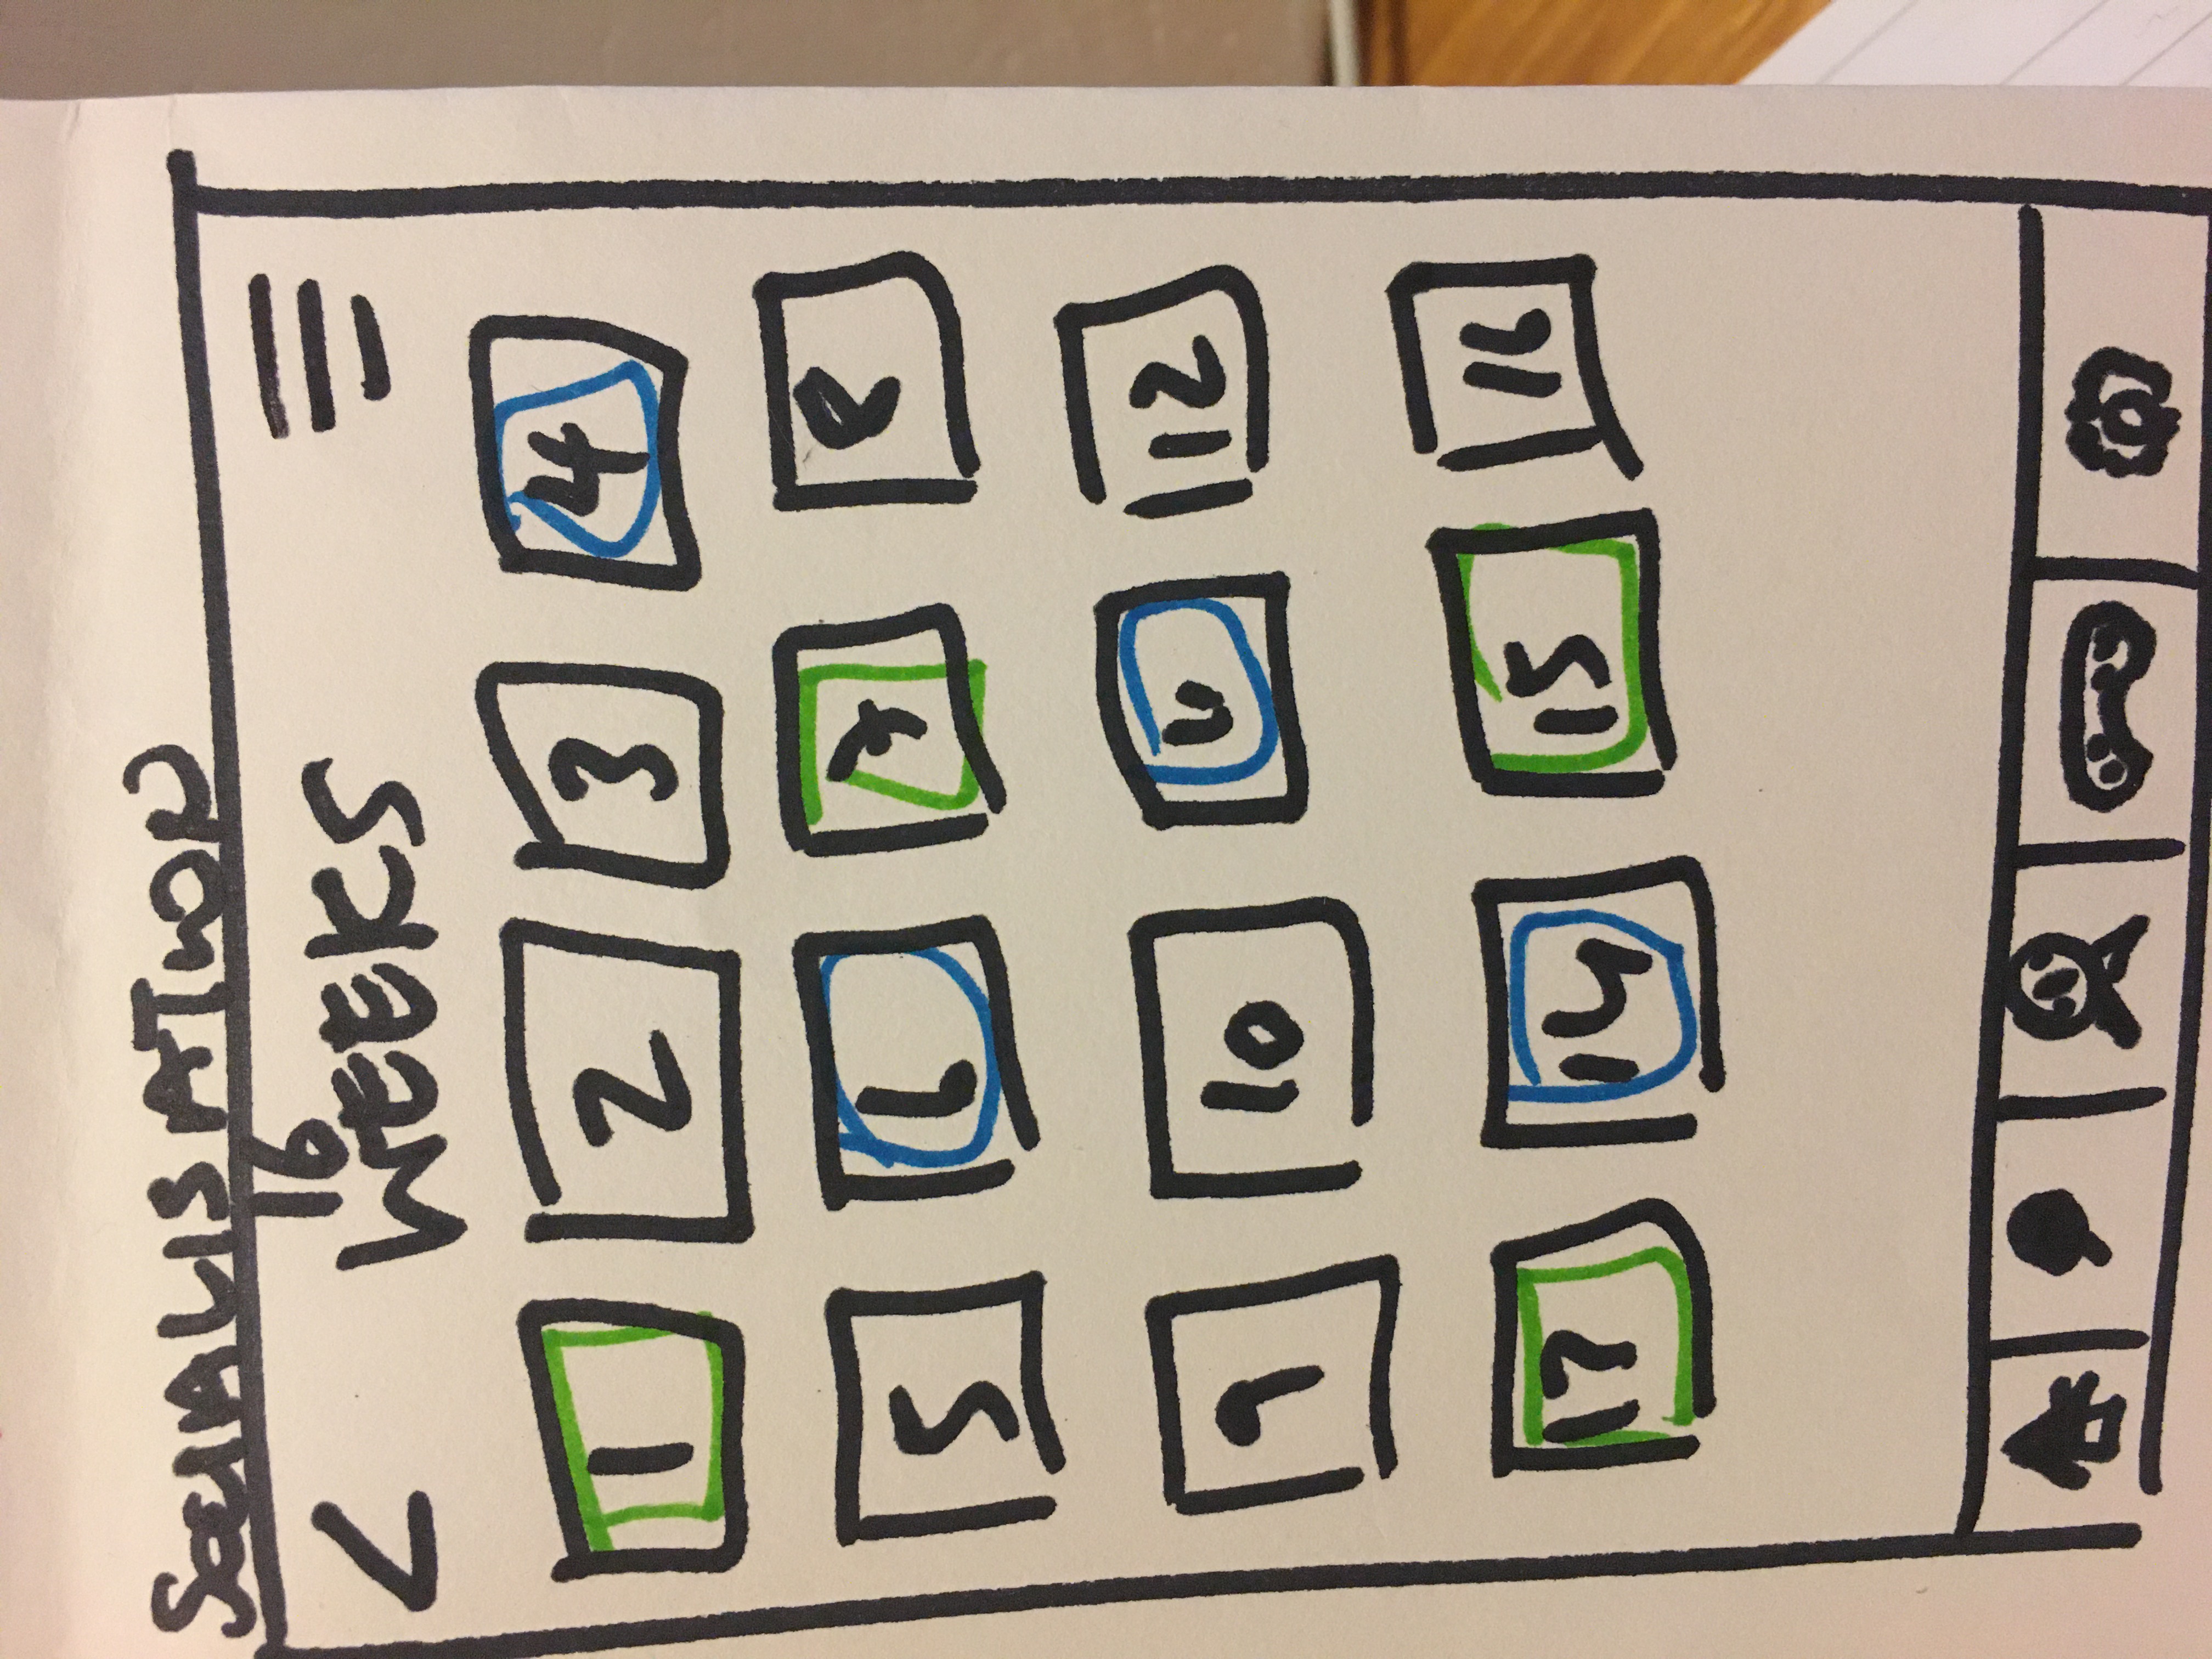 SOCIALISATION
16
< WEEKS
1 2 3 4
5 6 7 8
9 10 11 12
13 14 15 16